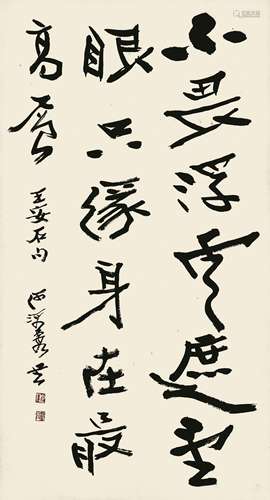 不畏浮云遮望
眼只缘身在最
高层
王安石句